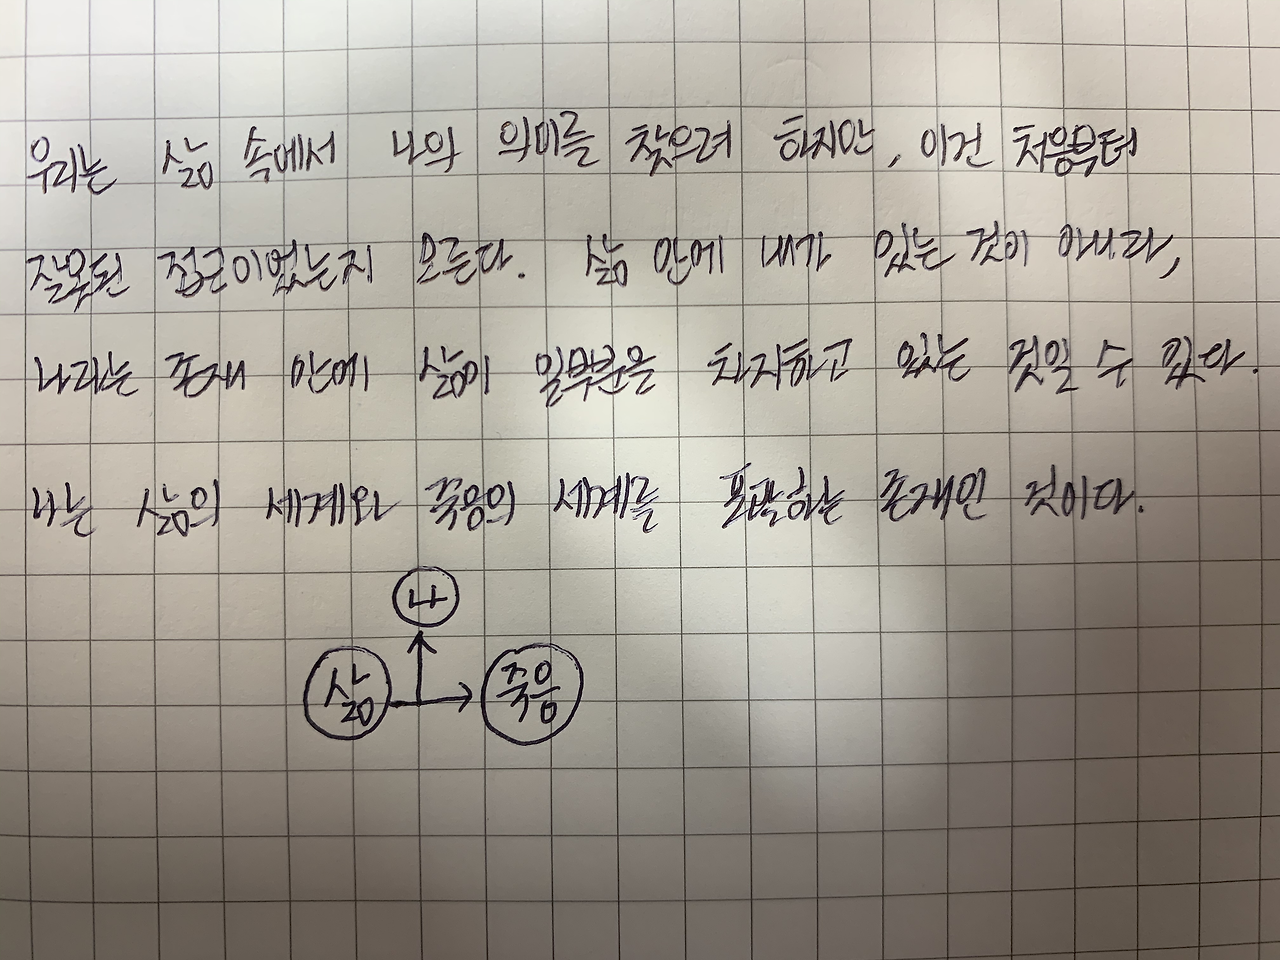 우리는 삶 속에서 나의 의미를 찾으려 하지만, 이건 처음부터
잘못된 접근이었는지 모른다. 삶 안에 내가 있는 것이 아니라,
나라는 존재 안에 삶이 일부분을 차지하고 있는 것일 수 있다.
나는 삶의 세계와 죽음의 세계를 포괄하는 존재인 것이다.
나
삶
죽음